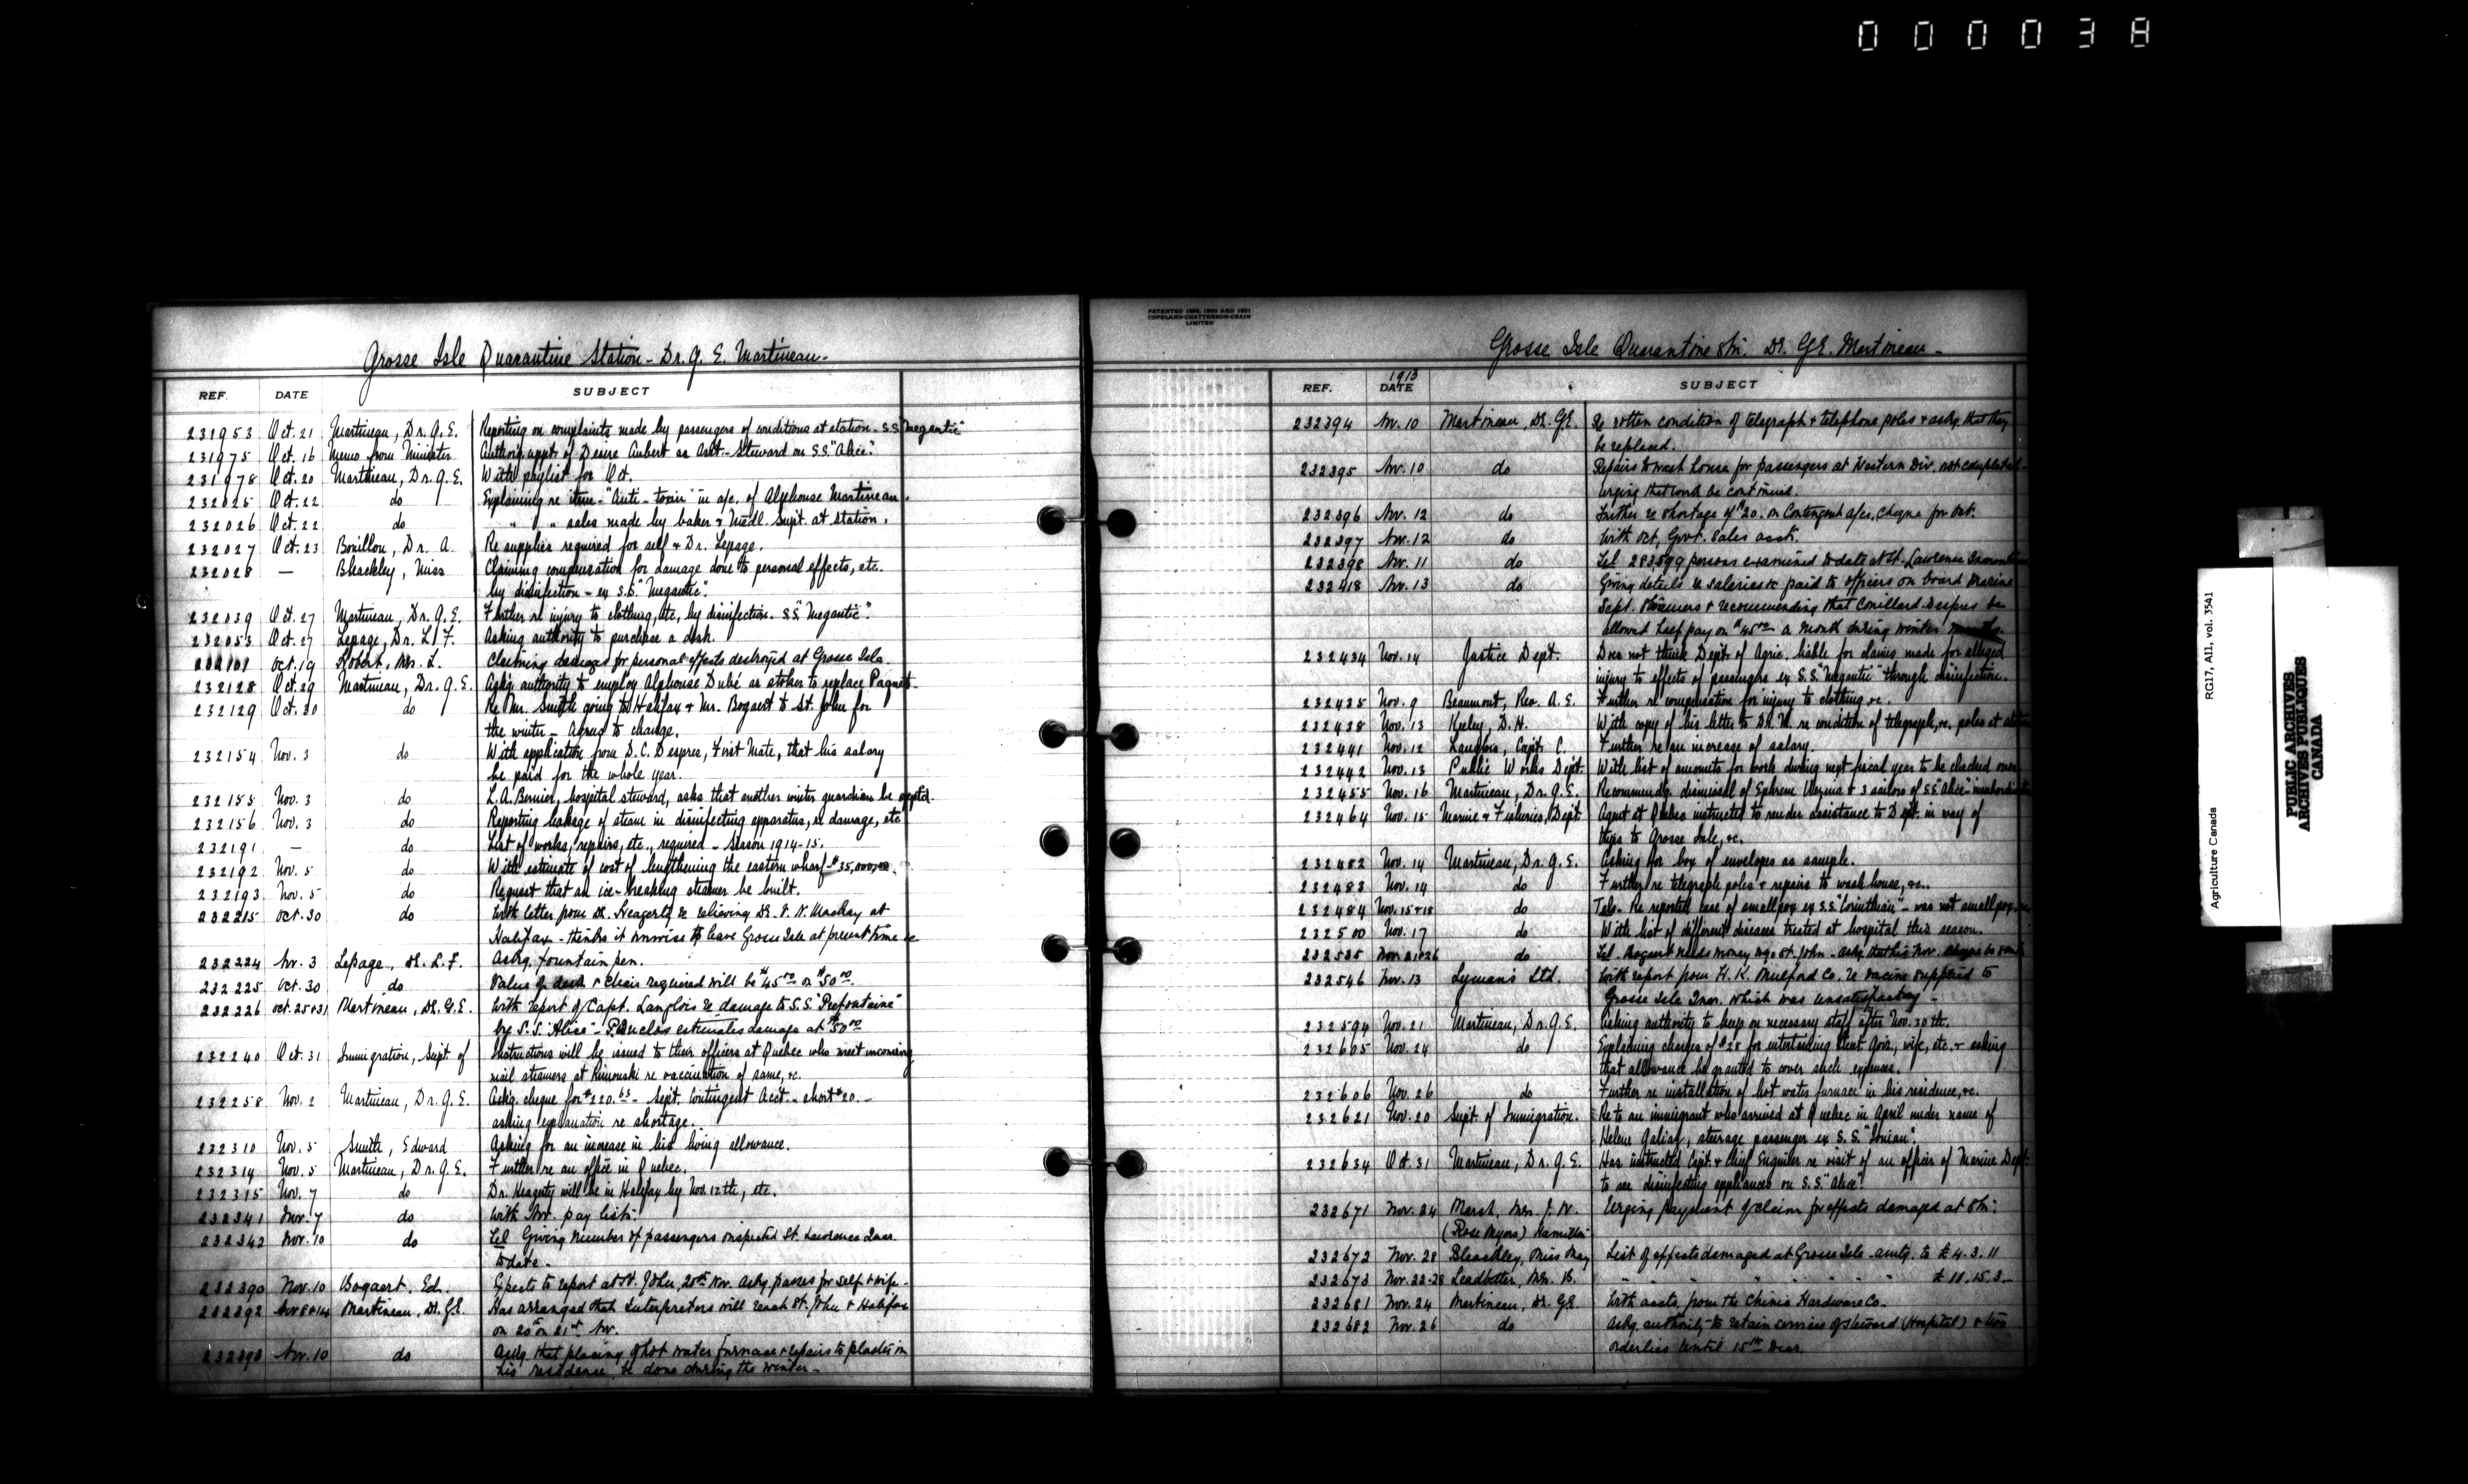 000038
Grosse Isle Quarantine Station - Dr. G. E. Martineau.
REF. DATE SUBJECT
231953 Oct. 21 Martineau, Dr. G. E. Reporting on complaints made by passengers of conditions at station - S.S. "Megantic"
231975 Oct. 16 Memo from Minister Authorg. appt. of Desire Aubert as Asst. Steward on S.S. "Alice".
231978 Oct. 20 Martineau, Dr. G. E. With paylist for Oct.
232025 Oct. 22 do Explaining re item - "Anti-toxin" in a/c. of Alphonse Martineau.
232026 Oct. 22 do " " sales made by baker & Medl. Supt. at station.
232027 Oct. 23 Bouillon, Dr. A. Re supplies required for self & Dr. Lepage.
232028 — Bleackley, Miss Claiming compensation for damage done to personal effects, etc.
by disinfection - ex S.S. "Megantic".
232039 Oct. 27 Martineau, Dr. G. E. Further re injury to clothing, etc, by disinfection. S.S. "Megantic".
232053 Oct. 27 Lepage, Dr. L. F. Asking authority to purchase a desk.
Oct. 19 Robert, Mrs. L. Claiming damages for personal effects destroyed at Grosse Isle.
232128 Oct. 29 Martineau, Dr. G. E. Askg. authority to employ Alphonse Dubé as stoker to replace Paquet.
232129 Oct. 30 do Re Mr. Smith going to Halifax & Mr. Bogaert to St. John for
the winter - Agrees to change.
232154 Nov. 3 do With application from D. C. Despres, First Mate, that his salary
be paid for the whole year.
232155 Nov. 3 do L. A. Bernier, hospital steward, asks that another winter guardian be
232156 Nov. 3 do Reporting leakage of steam in disinfecting apparatus, re damage, etc
232191 — do List of works, repairs, etc., required - Season 1914-15.
232192 Nov. 5 do With estimate of cost of lengthening the eastern wharf - $35,000.00.
232193 Nov. 5 do Request that an ice-breaking steamer be built.
232215 Oct. 30 do With letter from Dr. Heagerty re relieving Dr. N. Mackay at
Halifax - thinks it unwise to leave Grosse Isle at present time &c
232224 Nov. 3 Lepage, Dr. L. F. Askg. fountain pen.
232225 Oct. 30 do Value of desk & chair required will be $45.00 or $50.00.
232226 Oct. 25+31 Martineau, Dr. G. E. With report of Capt. Langlois re damage to S.S. "Prefontaine"
by S.S. "Alice" - P. Duclos estimates damage at $50.00
232240 Oct. 31 Immigration, Supt. of Instructions will be issued to their officers at Quebec who meet incoming
mail steamers at Rimouski re vaccination of same, &c.
232258 Nov. 2 Martineau, Dr. G. E. Askg. cheque for $220.63 - Sept. Contingent Acct. - short $20. -
asking explanation re shortage.
232310 Nov. 5 Smith, Edward Asking for an increase in his living allowance.
232314 Nov. 5 Martineau, Dr. G. E. Further re an office in Quebec.
232315 Nov. 7 do Dr. Heagerty will be in Halifax by Nov. 12th, etc.
232341 Nov. 7 do With Nov. pay list.
232342 Nov. 10 do Tel Giving number of passengers inspected St. Lawrence Quar.
to date.
232390 Nov. 10 Bogaert, Ed. Expects to report at St. John, 20th Nov. Askg. passes for self & wife -
232392 Nov 8+14 Martineau, Dr. G. E. Has arranged that interpreters will reach St. John & Halifax
on 20th or 21st Nov.
232393 Nov. 10 do Askg. that placing of hot water furnace & repairs to plaster in
his residence, be done during the winter -
PATENTED 1898, 1900 AND 1901
COPELAND-CHATTERSON-CRAIN
LIMITED
Grosse Isle Quarantine Stn. Dr. G. E. Martineau -
1913
REF. DATE SUBJECT
232394 Nov. 10 Martineau, Dr. G. E. Re rotten condition of telegraph & telephone poles & askg. that they
be replaced.
232395 Nov. 10 do Repairs to wash house for passengers at Western Div. not completed -
urging that work be continued.
232396 Nov. 12 do Further re shortage of $20. on Contingent a/cs, cheque for Oct.
232397 Nov. 12 do With Oct. Govt. Sales accts.
232398 Nov. 11 do Tel persons examined to date at St. Lawrence
232418 Nov. 13 do Giving details re salaries &c paid to officers on board Marine
Dept. Steamers & recommending that Couillard Despres be
allowed half pay or $45.00 a month during winter months.
232434 Nov. 14 Justice Dept. Does not think Dept. of Agric. liable for claims made for alleged
injury to effects of passengers ex S.S. "Megantic" through disinfection.
232435 Nov. 9 Beaumont, Rev. A. E. Further re compensation for injury to clothing, &c.
232438 Nov. 13 Keeley, D. H. With copy of his letter to Dr. M. re condition of telegraph, &c. poles at
232441 Nov. 12 Langlois, Capt. C. Further re an increase of salary.
232442 Nov. 13 Public Works Dept. With list of amounts for works during next fiscal year to be checked over
232455 Nov. 16 Martineau, Dr. G. E. Recommendg. dismissal of Ephrem Vezina & 3 sailors of S.S. "Alice" -
232464 Nov. 15 Marine & Fisheries, Dept. Agent at Quebec instructed to render assistance to Dept. in way of
trips to Grosse Isle, &c.
232482 Nov. 14 Martineau, Dr. G. E. Asking for box of envelopes as sample.
232483 Nov. 14 do Further re telegraph poles & repairs to wash house, &c..
232484 Nov. 15+18 do Tels. Re reported case of smallpox ex S.S. "Corinthian" - was not smallpox,
232500 Nov. 17 do With list of different diseases treated at hospital this season.
232535 Nov. 21+26 do Tel. Bogaert needs money St. John - askg. that his Nov. cheque be
232546 Nov. 13 Lymans Ltd. With report from H. K. Mulford Co. re vaccine supplied to
Grosse Isle Quar. which was unsatisfactory -
232594 Nov. 21 Martineau, Dr. G. E. Asking authority to keep on necessary staff after Nov. 30th.
232605 Nov. 24 do Explaining charges of $28 for entertaining Lieut. Govr., wife, etc. & asking
that allowance be granted to cover such expenses.
232606 Nov. 26 do Further re installation of hot water furnace in his residence, &c.
232621 Nov. 20 Supt. of Immigration. Re to an immigrant who arrived at Quebec in April under name of
Helene, steerage passenger ex S.S. "Ionian".
232634 Oct. 31 Martineau, Dr. G. E. Has instructed Capt. & Chief Engineer re visit of an officer of Marine Dept.
to see disinfecting appliances on S.S. "Alice".
232671 Nov. 24 Marsh, Mrs. J. W. Urging payment of claim for effects damaged at Stn.
(Rose Myers) Hamilton
232672 Nov. 28 Bleackley, Miss May List of effects damaged at Grosse Isle - amtg. to £4.3.11
232673 Nov. 22-28 Leadbetter, Mrs. B. " " " " " " £11.15.3 -
232681 Nov. 24 Martineau, Dr. G. E. With accts. from the Chinic Hardware Co.
232682 Nov. 26 do Askg. authority to retain services of steward (Hospital) & two
orderlies until 15th Decr.
Agriculture Canada RG17, AII, vol. 3541
PUBLIC ARCHIVES
ARCHIVES PUBLIQUES
CANADA